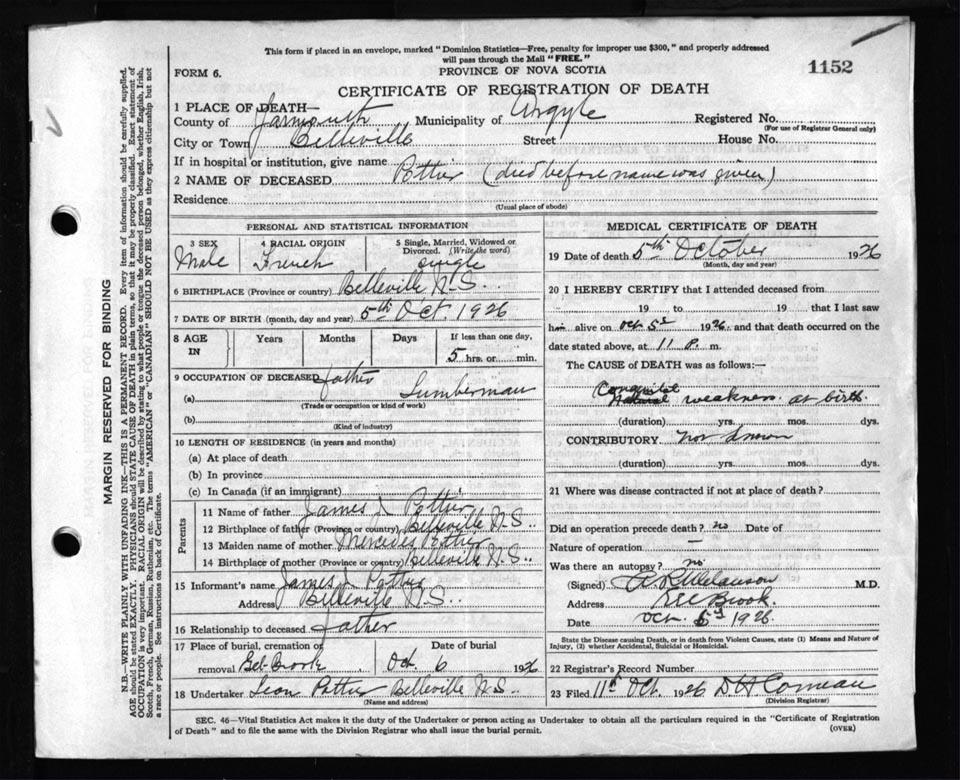 This form if placed in an envelope, marked "Dominion Statistics—Free, penalty for improper use $300," and properly addressed
will pass through the Mail "FREE."
FORM 6.
PROVINCE OF NOVA SCOTIA
1152
CERTIFICATE OF REGISTRATION OF DEATH
1 PLACE OF DEATH—
County of Yarmouth Municipality of Argyle Registered No.
(For use of Registrar General only)
City or Town Belleville Street House No.
If in hospital or institution, give name
2 NAME OF DECEASED Pottier (died before name was given)
Residence
(Usual place of abode)
PERSONAL AND STATISTICAL INFORMATION
3 SEX
Male
4 RACIAL ORIGIN
French
5 Single, Married, Widowed or
Divorced. (Write the word)
single
6 BIRTHPLACE (Province or country) Belleville N.S.
7 DATE OF BIRTH (month, day and year) 5th Oct. 1926
8 AGE
IN
Years
Months
Days
If less than one day,
5 hrs. or min.
9 OCCUPATION OF DECEASED father
(a) Lumberman
(Trade or occupation or kind of work)
(b)
(Kind of industry)
10 LENGTH OF RESIDENCE (in years and months)
(a) At place of death
(b) In province
(c) In Canada (if an immigrant)
Parents
11 Name of father James J. Pottier
12 Birthplace of father (Province or country) Belleville N.S.
13 Maiden name of mother Mercedes Pottier
14 Birthplace of mother (Province or country) Belleville N.S.
15 Informant's name James J. Pottier
Address Belleville N.S.
16 Relationship to deceased father
17 Place of burial, cremation or
removal Bel-Brook
Date of burial
Oct. 6 1926
18 Undertaker Leon Pottier Belleville N.S.
(Name and address)
MEDICAL CERTIFICATE OF DEATH
19 Date of death 5th October 1926
(Month, day and year)
20 I HEREBY CERTIFY that I attended deceased from
19 to 19 that I last saw
him alive on Oct 5th 1926, and that death occurred on the
date stated above, at 11 P. m.
The CAUSE OF DEATH was as follows:—
Congenital
weakness at birth
(duration) yrs. mos. dys.
CONTRIBUTORY not known
(duration) yrs. mos. dys.
21 Where was disease contracted if not at place of death?
Did an operation precede death? no Date of
Nature of operation —
Was there an autopsy? no
(Signed) Melanson M.D.
Address Eel Brook
Date Oct. 1926.
State the Disease causing Death, or in death from Violent Causes, state (1) Means and Nature of
Injury, (2) whether Accidental, Suicidal or Homicidal.
22 Registrar's Record Number
23 Filed 11th Oct. 1926 D H Comeau
(Division Registrar)
SEC. 46—Vital Statistics Act makes it the duty of the Undertaker or person acting as Undertaker to obtain all the particulars required in the "Certificate of Registration
of Death" and to file the same with the Division Registrar who shall issue the burial permit.
(OVER)
MARGIN RESERVED FOR BINDING
N.B.—WRITE PLAINLY WITH UNFADING INK—THIS IS A PERMANENT RECORD. Every item of information should be carefully supplied.
AGE should be stated EXACTLY. PHYSICIANS should STATE CAUSE OF DEATH in plain terms, so that it may be properly classified. Exact statement of
OCCUPATION is very important. RACIAL ORIGIN will be described by stating to what people or tongue the deceased person belonged, whether English, Irish,
Scotch, French, German, Russian, Ruthenian, etc. The terms "AMERICAN" or "CANADIAN" SHOULD NOT BE USED as they express citizenship but not
a race or people. See instructions on back of Certificate.